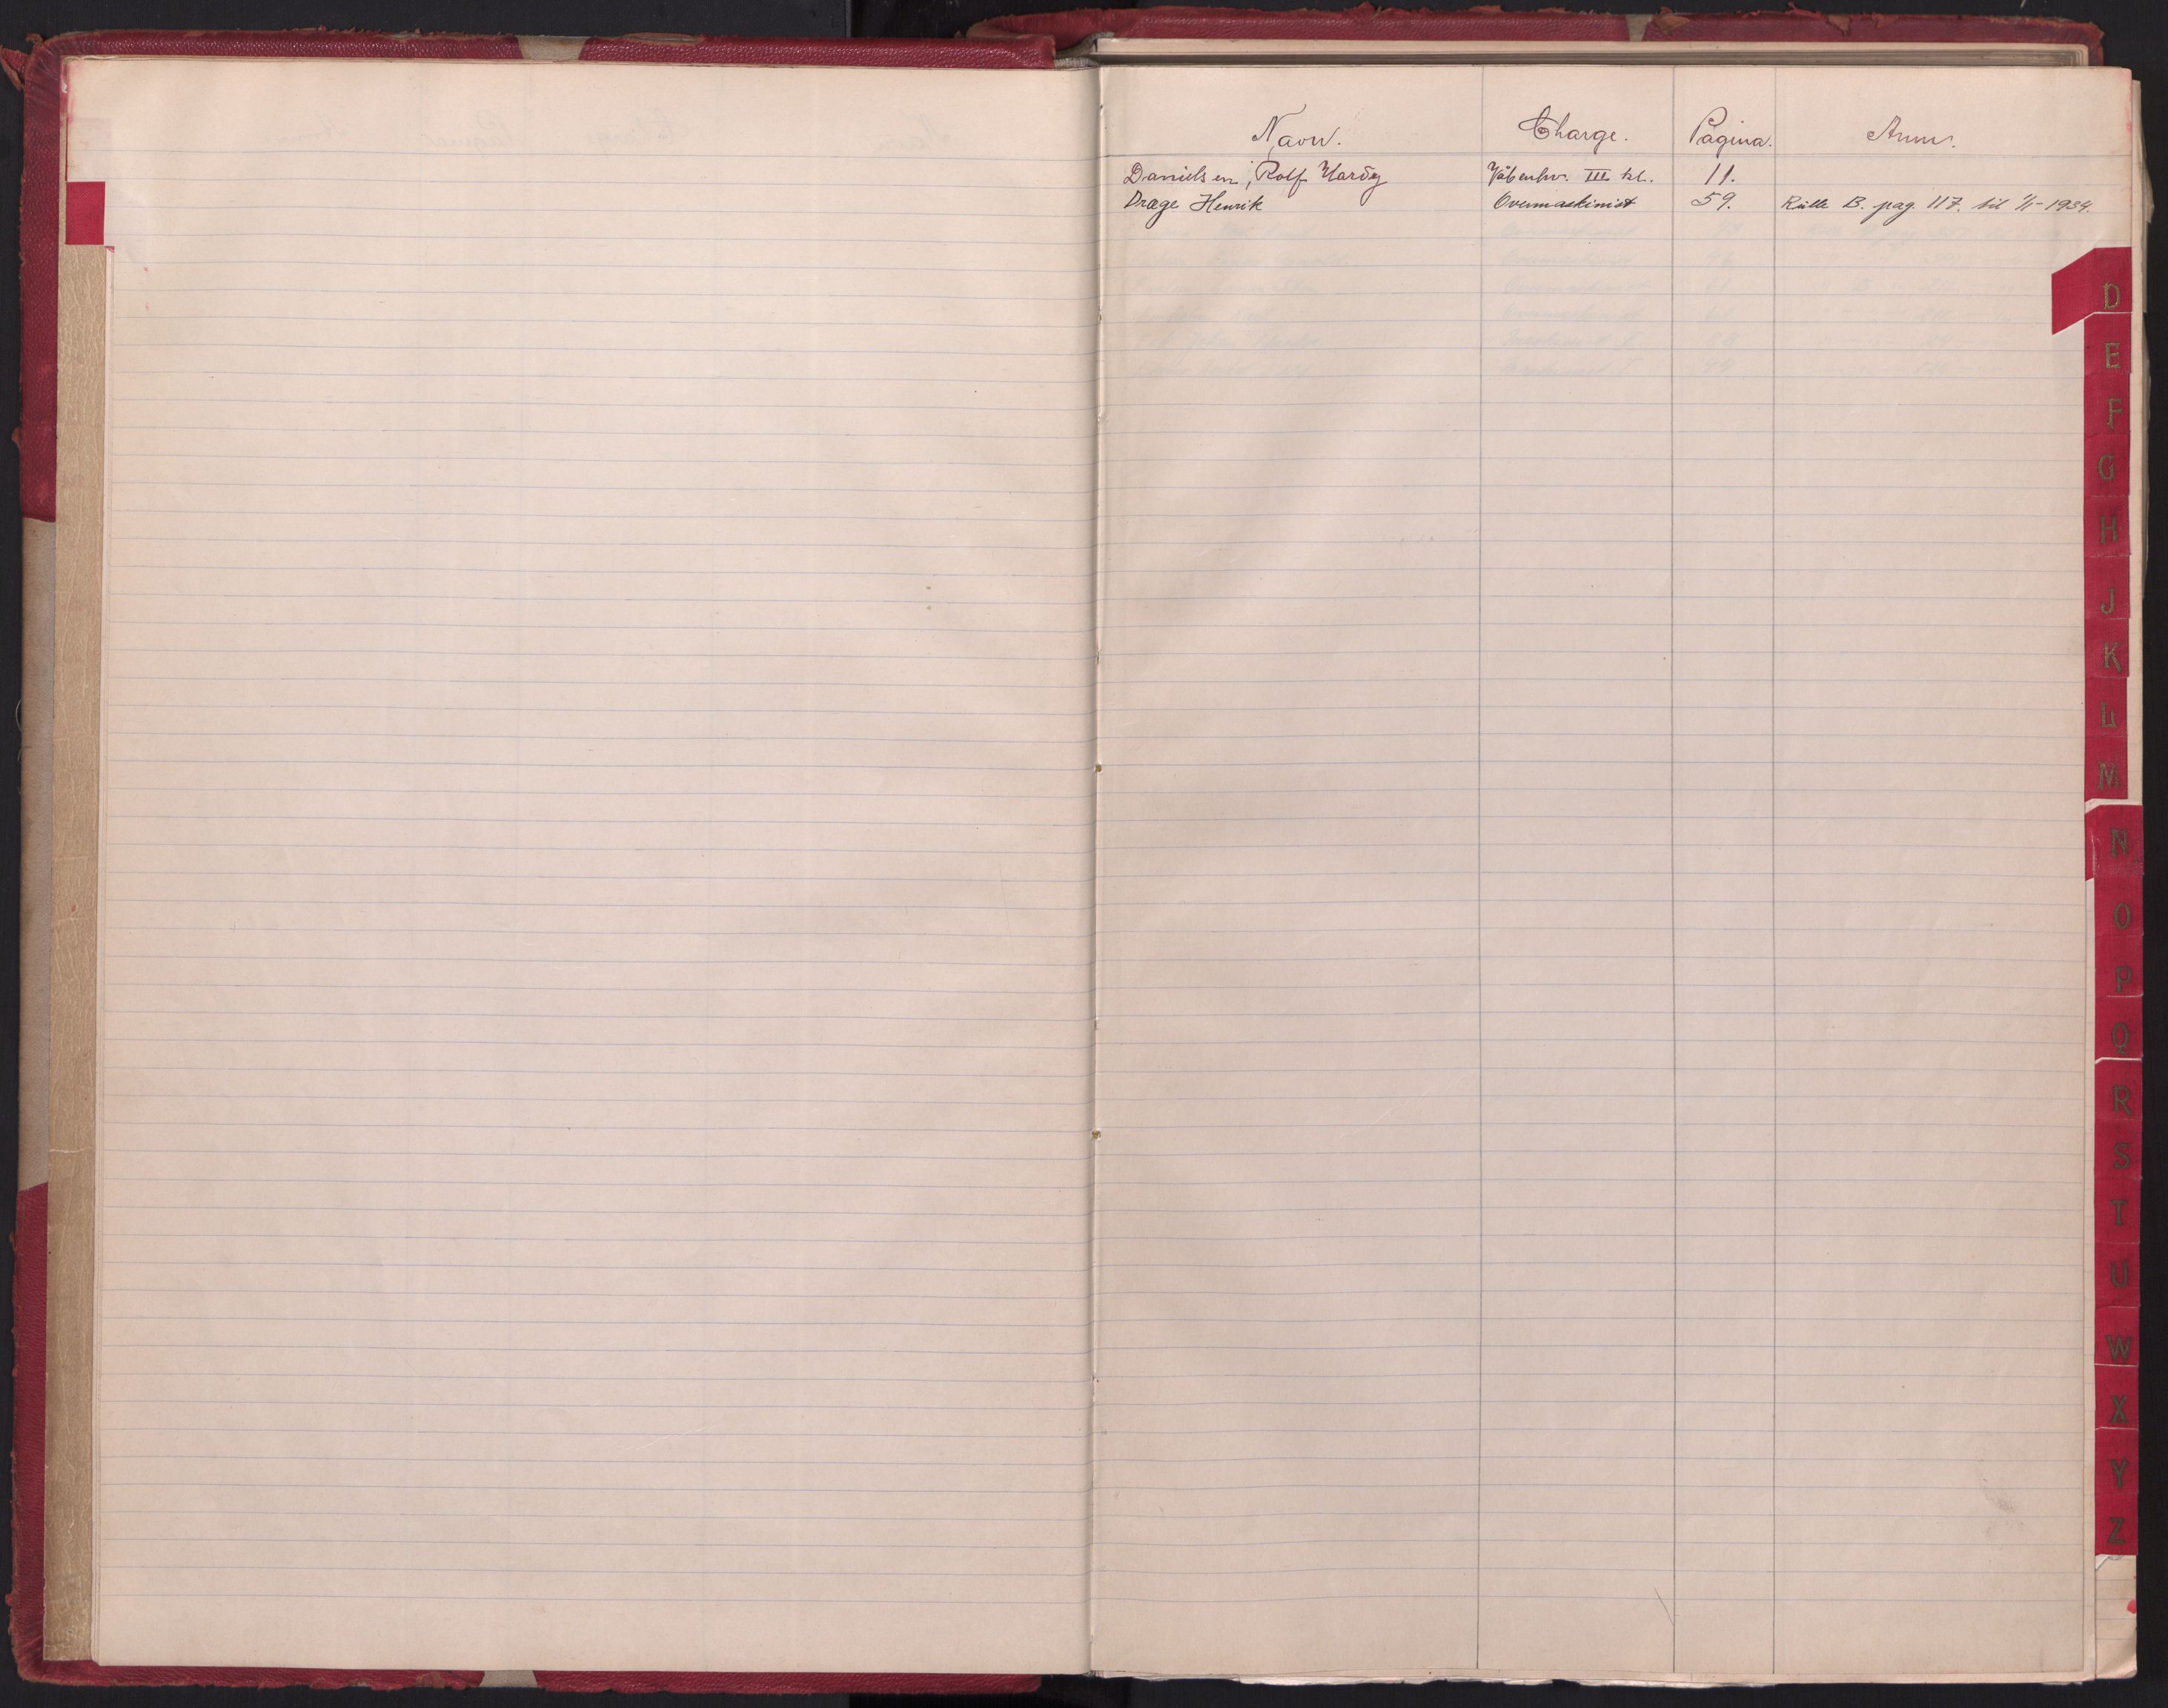 Navn. Charge. Pagina. Anm.
Danielsen, Rolf Hardy Våbenhv. III kl. 11.
Dræge Henrik Overmaskinist 59. Rulle B. pag. 117. til 1/1-1934.
D
E
F
G
H
J
K
L
M
N
O
P
Q
R
S
T
U
W
X
Y
Z